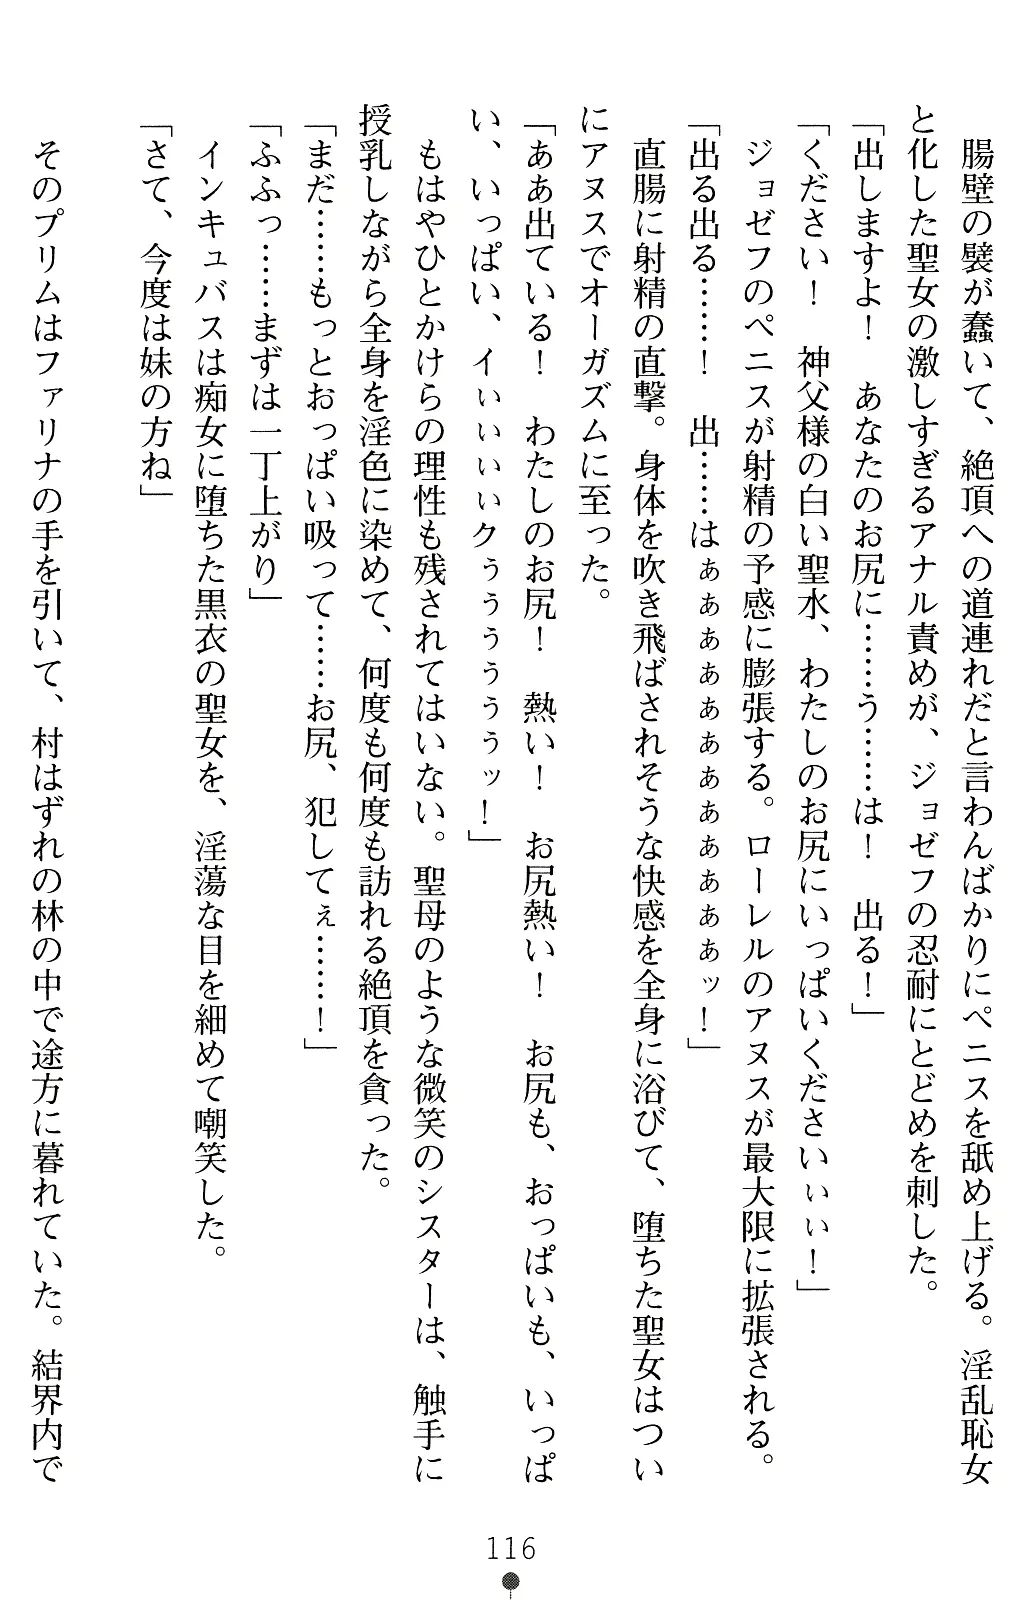 腸壁の襞が蠢いて、絶頂への道連れだと言わんばかりにペニスを舐め上げる。淫乱恥女
と化した聖女の激しすぎるアナル責めが、ジョゼフの忍耐にとどめを刺した。
「出しますよ！　あなたのお尻に……う……は！　出る！」
「ください！　神父様の白い聖水、わたしのお尻にいっぱいくださいぃぃ！」
　ジョゼフのペニスが射精の予感に膨張する。ローレルのアヌスが最大限に拡張される。
「出る出る……！　出……はぁぁぁぁぁぁぁぁぁぁぁッ！」
　直腸に射精の直撃。身体を吹き飛ばされそうな快感を全身に浴びて、堕ちた聖女はつい
にアヌスでオーガズムに至った。
「あぁ出ている！　わたしのお尻！　熱い！　お尻熱い！　お尻も、おっぱいも、いっぱ
い、いっぱい、イぃぃぃクぅぅぅぅぅッ！」
　もはやひとかけらの理性も残されてはいない。聖母のような微笑のシスターは、触手に
授乳しながら全身を淫色に染めて、何度も何度も訪れる絶頂を貪った。
「まだ……もっとおっぱい吸って……お尻、犯してぇ……！」
「ふふっ……まずは一丁上がり」
　インキュバスは痴女に堕ちた黒衣の聖女を、淫蕩な目を細めて嘲笑した。
「さて、今度は妹の方ね」
　そのプリムはファリナの手を引いて、村はずれの林の中で途方に暮れていた。結界内で
116